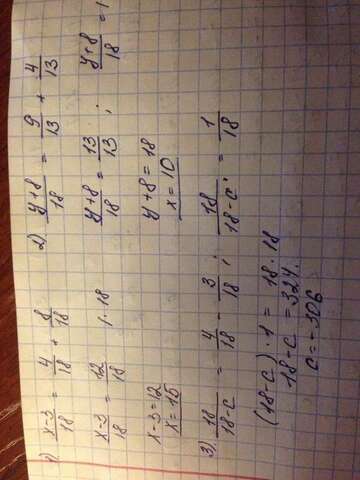 1) (x-3)/18 = 4/18 + 8/18
(x-3)/18 = 12/18 1·18
x-3=12
x=15
2) (y+8)/18 = 9/13 + 4/13
(y+8)/18 = 13/13 ; (y+8)/18 = 1
y+8=18
x=10
3) 18/(18-c) = 4/18 - 3/18 ; 18/(18-c) = 1/18
(18-c)·1 = 18·18
18-c = 324.
c=-306